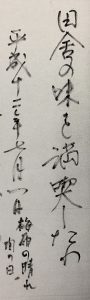 田舎の味も満喫したわ
平成十二年七月八日梅雨の晴れ
間の日